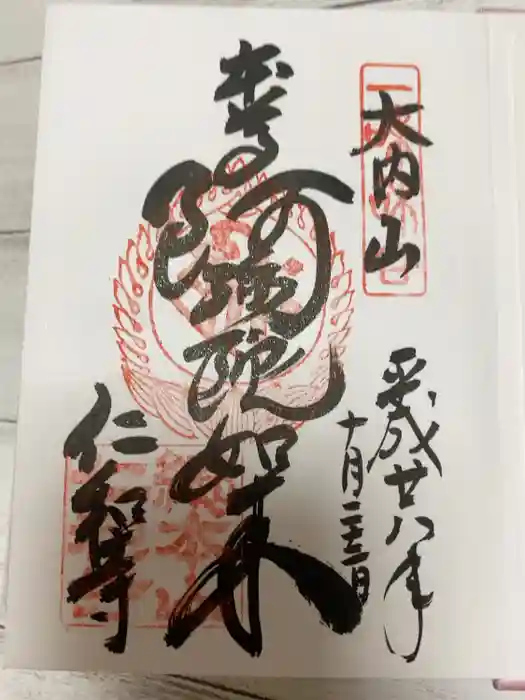 大内山
平成廿八年
十月二十三日
本尊
阿弥陀如来
仁和寺